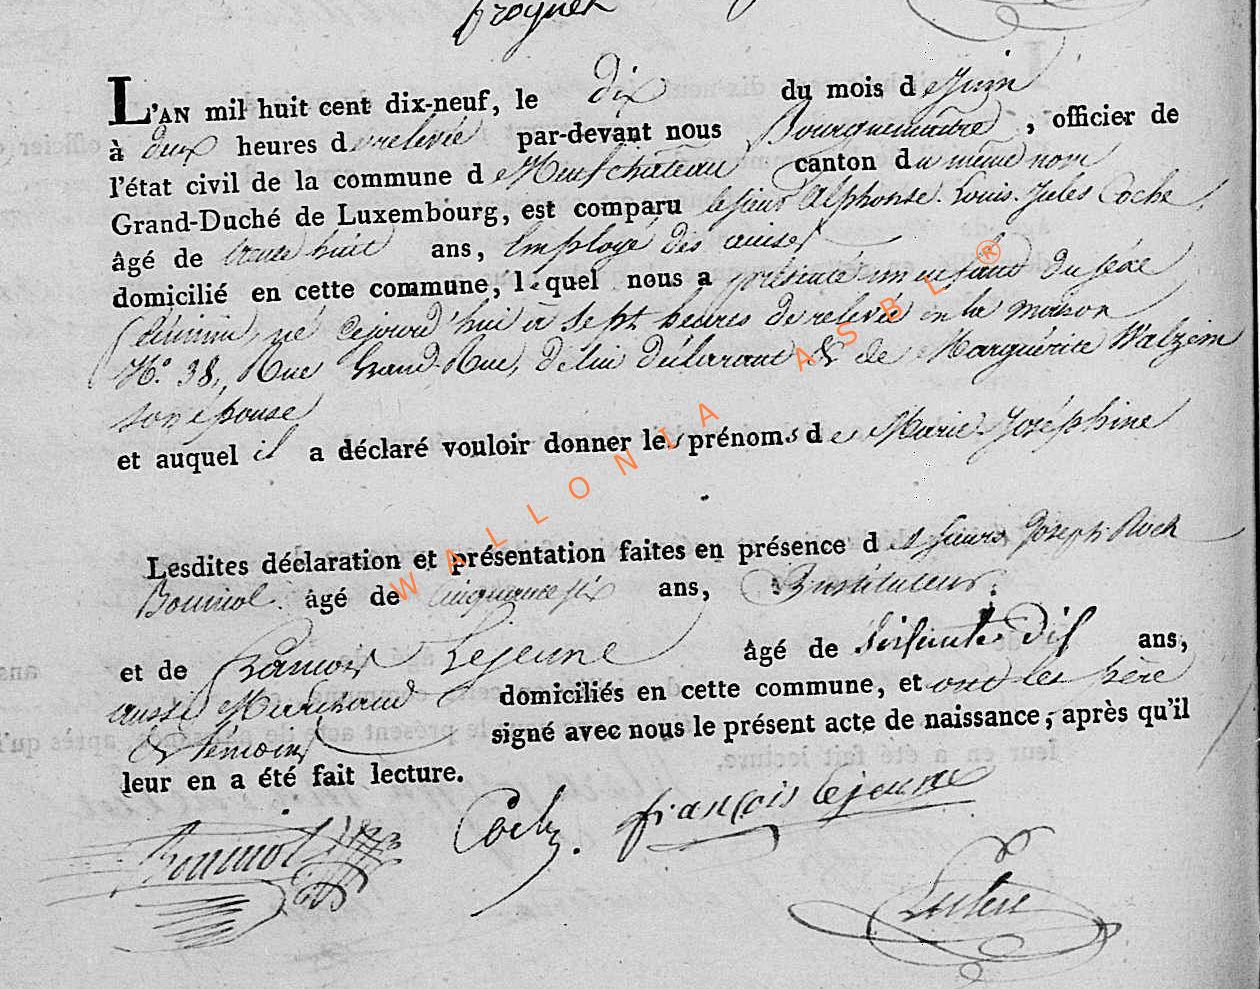 froguet
L'AN mil huit cent dix-neuf, le dix du mois de Juin
à deux heures de relevée par-devant nous Bourguemaitre, officier de
l'état civil de la commune de Neufchateau canton du même nom
Grand-Duché de Luxembourg, est comparu le sieur Alphonse. Louis. Jules Coche,
âgé de trente huit ans, Employé des accises
domicilié en cette commune, lequel nous a présenté un enfant du sexe
féminin, né cejourd'hui à sept heures de relevée en la maison
N.° 38, Rue Grand-Rue, de lui déclarant & de Marguérite Walzem
son épouse
et auquel il a déclaré vouloir donner les prénoms de Marie-Joséphine
Lesdites déclaration et présentation faites en présence des sieurs Joseph Roch
Bouniol âgé de cinquante six ans, Instituteur.
et de François Lejeune âgé de soisante dis ans,
aussi Marchand domiciliés en cette commune, et ont les père
& témoins signé avec nous le présent acte de naissance, après qu'il
leur en a été fait lecture.
Bouniol Coche. françois lejeune
WALLONIA ASBL ®